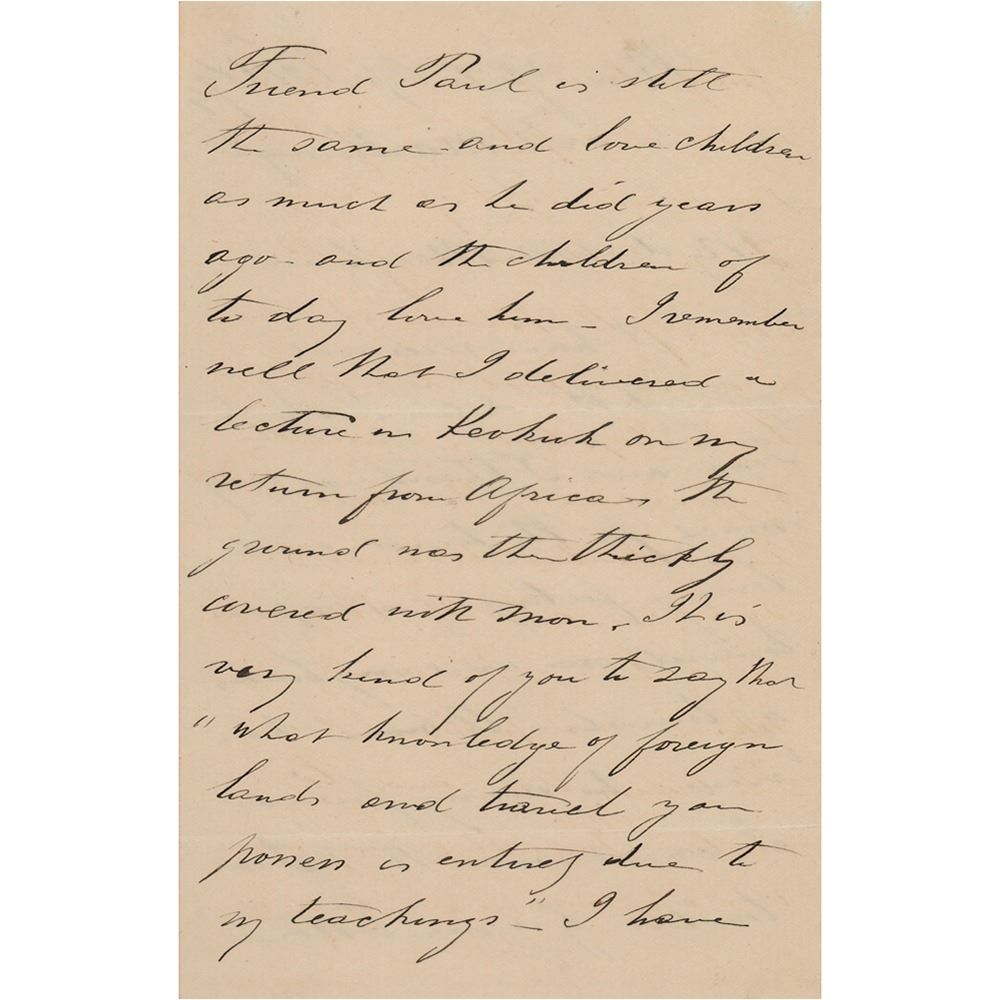 Friend Paul is still
the same and love children
as much as he did years
ago - and the children of
to day love him - I remember
well that I delivered a
lecture in Keokuk on my
return from Africa the
ground was then thickly
covered with snow. It is
very kind of you to say that
"what knowledge of foreign
lands and travel you
possess is entirely due to
my teachings" - I have